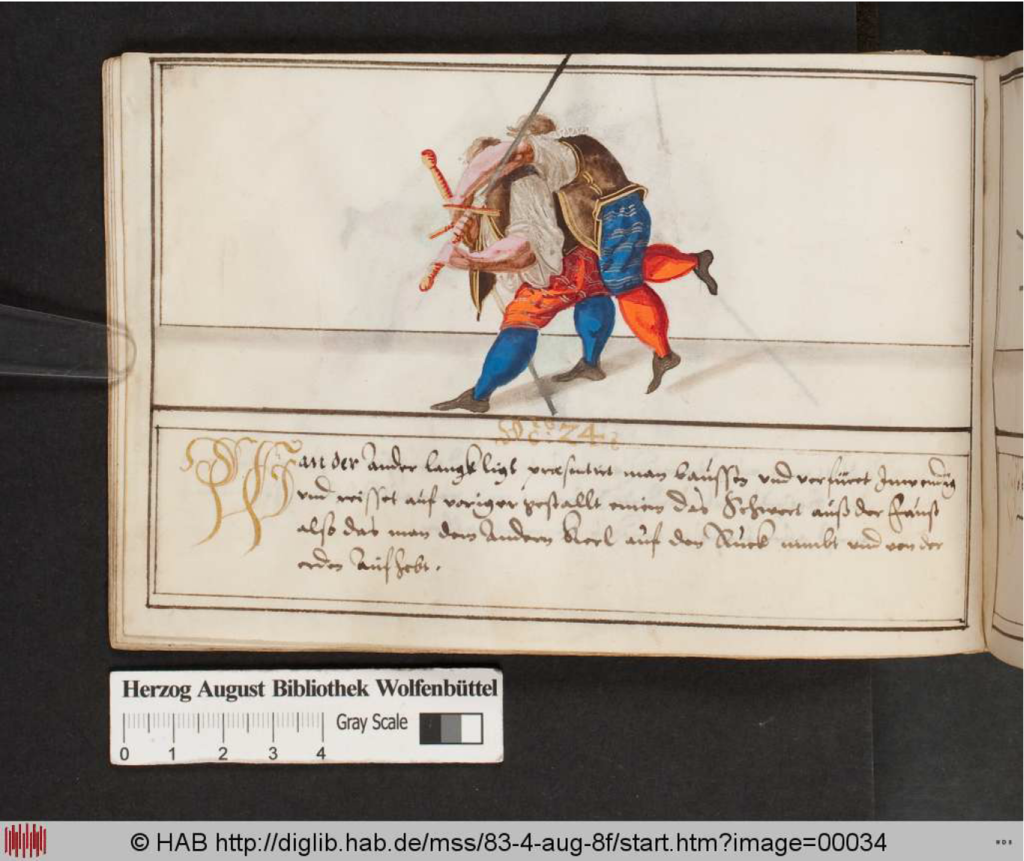 N.º 24.
Wan der Ander langk ligt præsentirt man daussen vnd verfüret Inwendig
vnd reisset auf voriger gestallt einen das Schwert auß der Faust
also das man den Andern Kerl auf den Ruck nimbt vnd von der
erden Aufhebt.
Herzog August Bibliothek Wolfenbüttel
Gray Scale
0 1 2 3 4
© HAB http://diglib.hab.de/mss/83-4-aug-8f/start.htm?image=00034